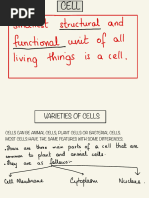 CELL
Smallest structural and
functional unit of all
living things is a cell.
VARIETIES OF CELLS
CELLS CAN BE ANIMAL CELLS, PLANT CELLS OR BACTERIAL CELLS.
MOST CELLS HAVE THE SAME FEATURES WITH SOME DIFFERENCES.
There are three main parts of a cell that are
common to plant and animal cells
They are as follows:-
Cell Membrane Cytoplasm Nucleus